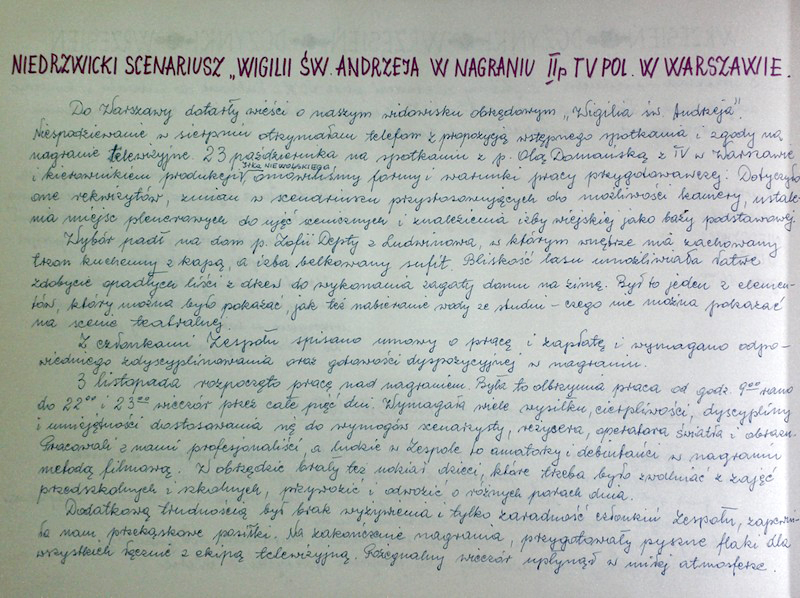 NIEDRZWICKI SCENARIUSZ „WIGILII ŚW. ANDRZEJA W NAGRANIU IIp TV POL. W WARSZAWIE.
Do Warszawy dotarły wieści o naszym widowisku obrzędowym „Wigilia św. Andrzeja".
Niespodziewanie w sierpniu otrzymałam telefon z propozycją wstępnego spotkania i zgody na
nagranie telewizyjne. 23 października na spotkaniu z p. Olą Domańską z TV w Warszawie
i kierownikiem produkcji omówiliśmy formy i warunki pracy przygotowawczej. Dotyczyło
one rekwizytów, zmian w scenariuszu przystosowujących do możliwości kamery, ustale-
nia miejsc plenerowych do ujęć scenicznych i znalezienia izby wiejskiej jako bazy podstawowej.
Wybór padł na dom p. Zofii Depty z Ludwinowa, w którym wnętrze ma zachowany
tron kuchenny z kapą, a izba belkowany sufit. Bliskość lasu umożliwiała łatwe
zdobycie opadłych liści z drzew do wykonania zagaty domu na zimę. Był to jeden z elemen-
tów, który można było pokazać, jak też nabieranie wody ze studni – czego nie można pokazać
na scenie teatralnej.
Z członkami Zespołu spisano umowy o pracę i zapłatę i wymagano odpo-
wiedniego zdyscyplinowania oraz gotowości dyspozycyjnej w nagraniu.
3 listopada rozpoczęto pracę nad nagraniem. Była to olbrzymia praca od godz. 9⁰⁰ rano
do 22⁰⁰ i 23⁰⁰ wieczór przez całe pięć dni. Wymagała wiele wysiłku, cierpliwości, dyscypliny
i umiejętności dostosowania się do wymogów scenarzysty, reżysera, operatora światła i obrazu.
Pracowali z nami profesjonaliści, a ludzie w Zespole to amatorzy i debiutanci w nagraniu
metodą filmową. W obrzędzie brały też udział dzieci, które trzeba było zwalniać z zajęć
przedszkolnych i szkolnych, przywozić i odwozić o różnych porach dnia.
Dodatkową trudnością był brak wyżywienia i tylko zaradność członkiń Zespołu, zapewni-
ła nam przekąskowe posiłki. Na zakończenie nagrania, przygotowały pyszne flaki dla
wszystkich łącznie z ekipą telewizyjną. Pożegnalny wieczór upłynął w miłej atmosferze.